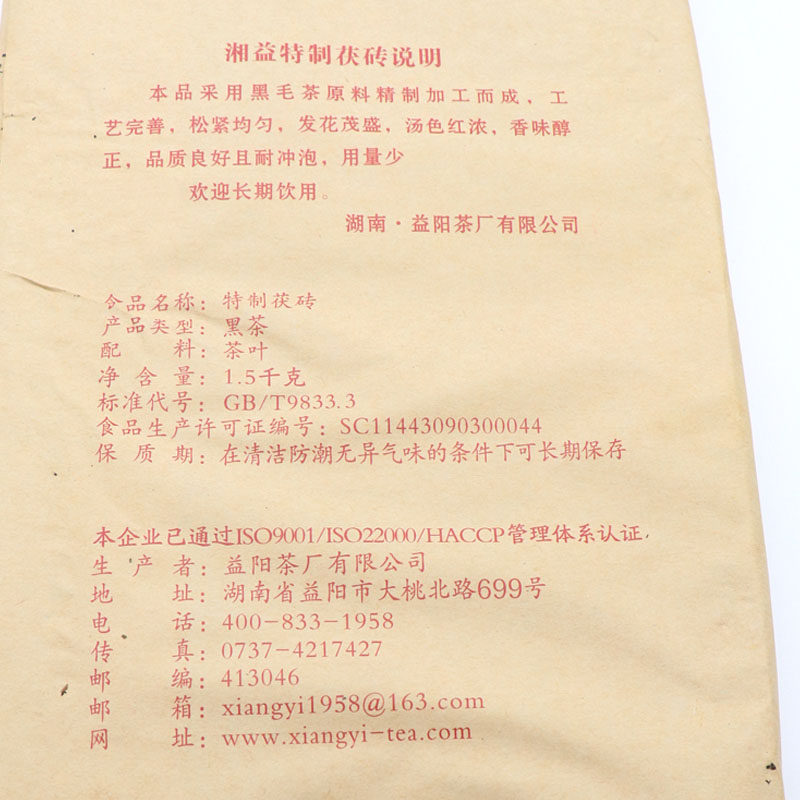 湘益特制茯砖说明
本品采用黑毛茶原料精制加工而成，工
艺完善，松紧均匀，发花茂盛，汤色红浓，香味醇
正，品质良好且耐冲泡，用量少
欢迎长期饮用。
湖南·益阳茶厂有限公司
食品名称：特制茯砖
产品类型：黑茶
配 料：茶叶
净 含 量：1.5千克
标准代号：GB/T9833.3
食品生产许可证编号：SC11443090300044
保 质 期：在清洁防潮无异气味的条件下可长期保存
本企业已通过ISO9001/ISO22000/HACCP管理体系认证.
生 产 者：益阳茶厂有限公司
地 址：湖南省益阳市大桃北路699号
电 话：400-833-1958
传 真：0737-4217427
邮 编：413046
邮 箱：xiangyi1958@163.com
网 址：www.xiangyi-tea.com